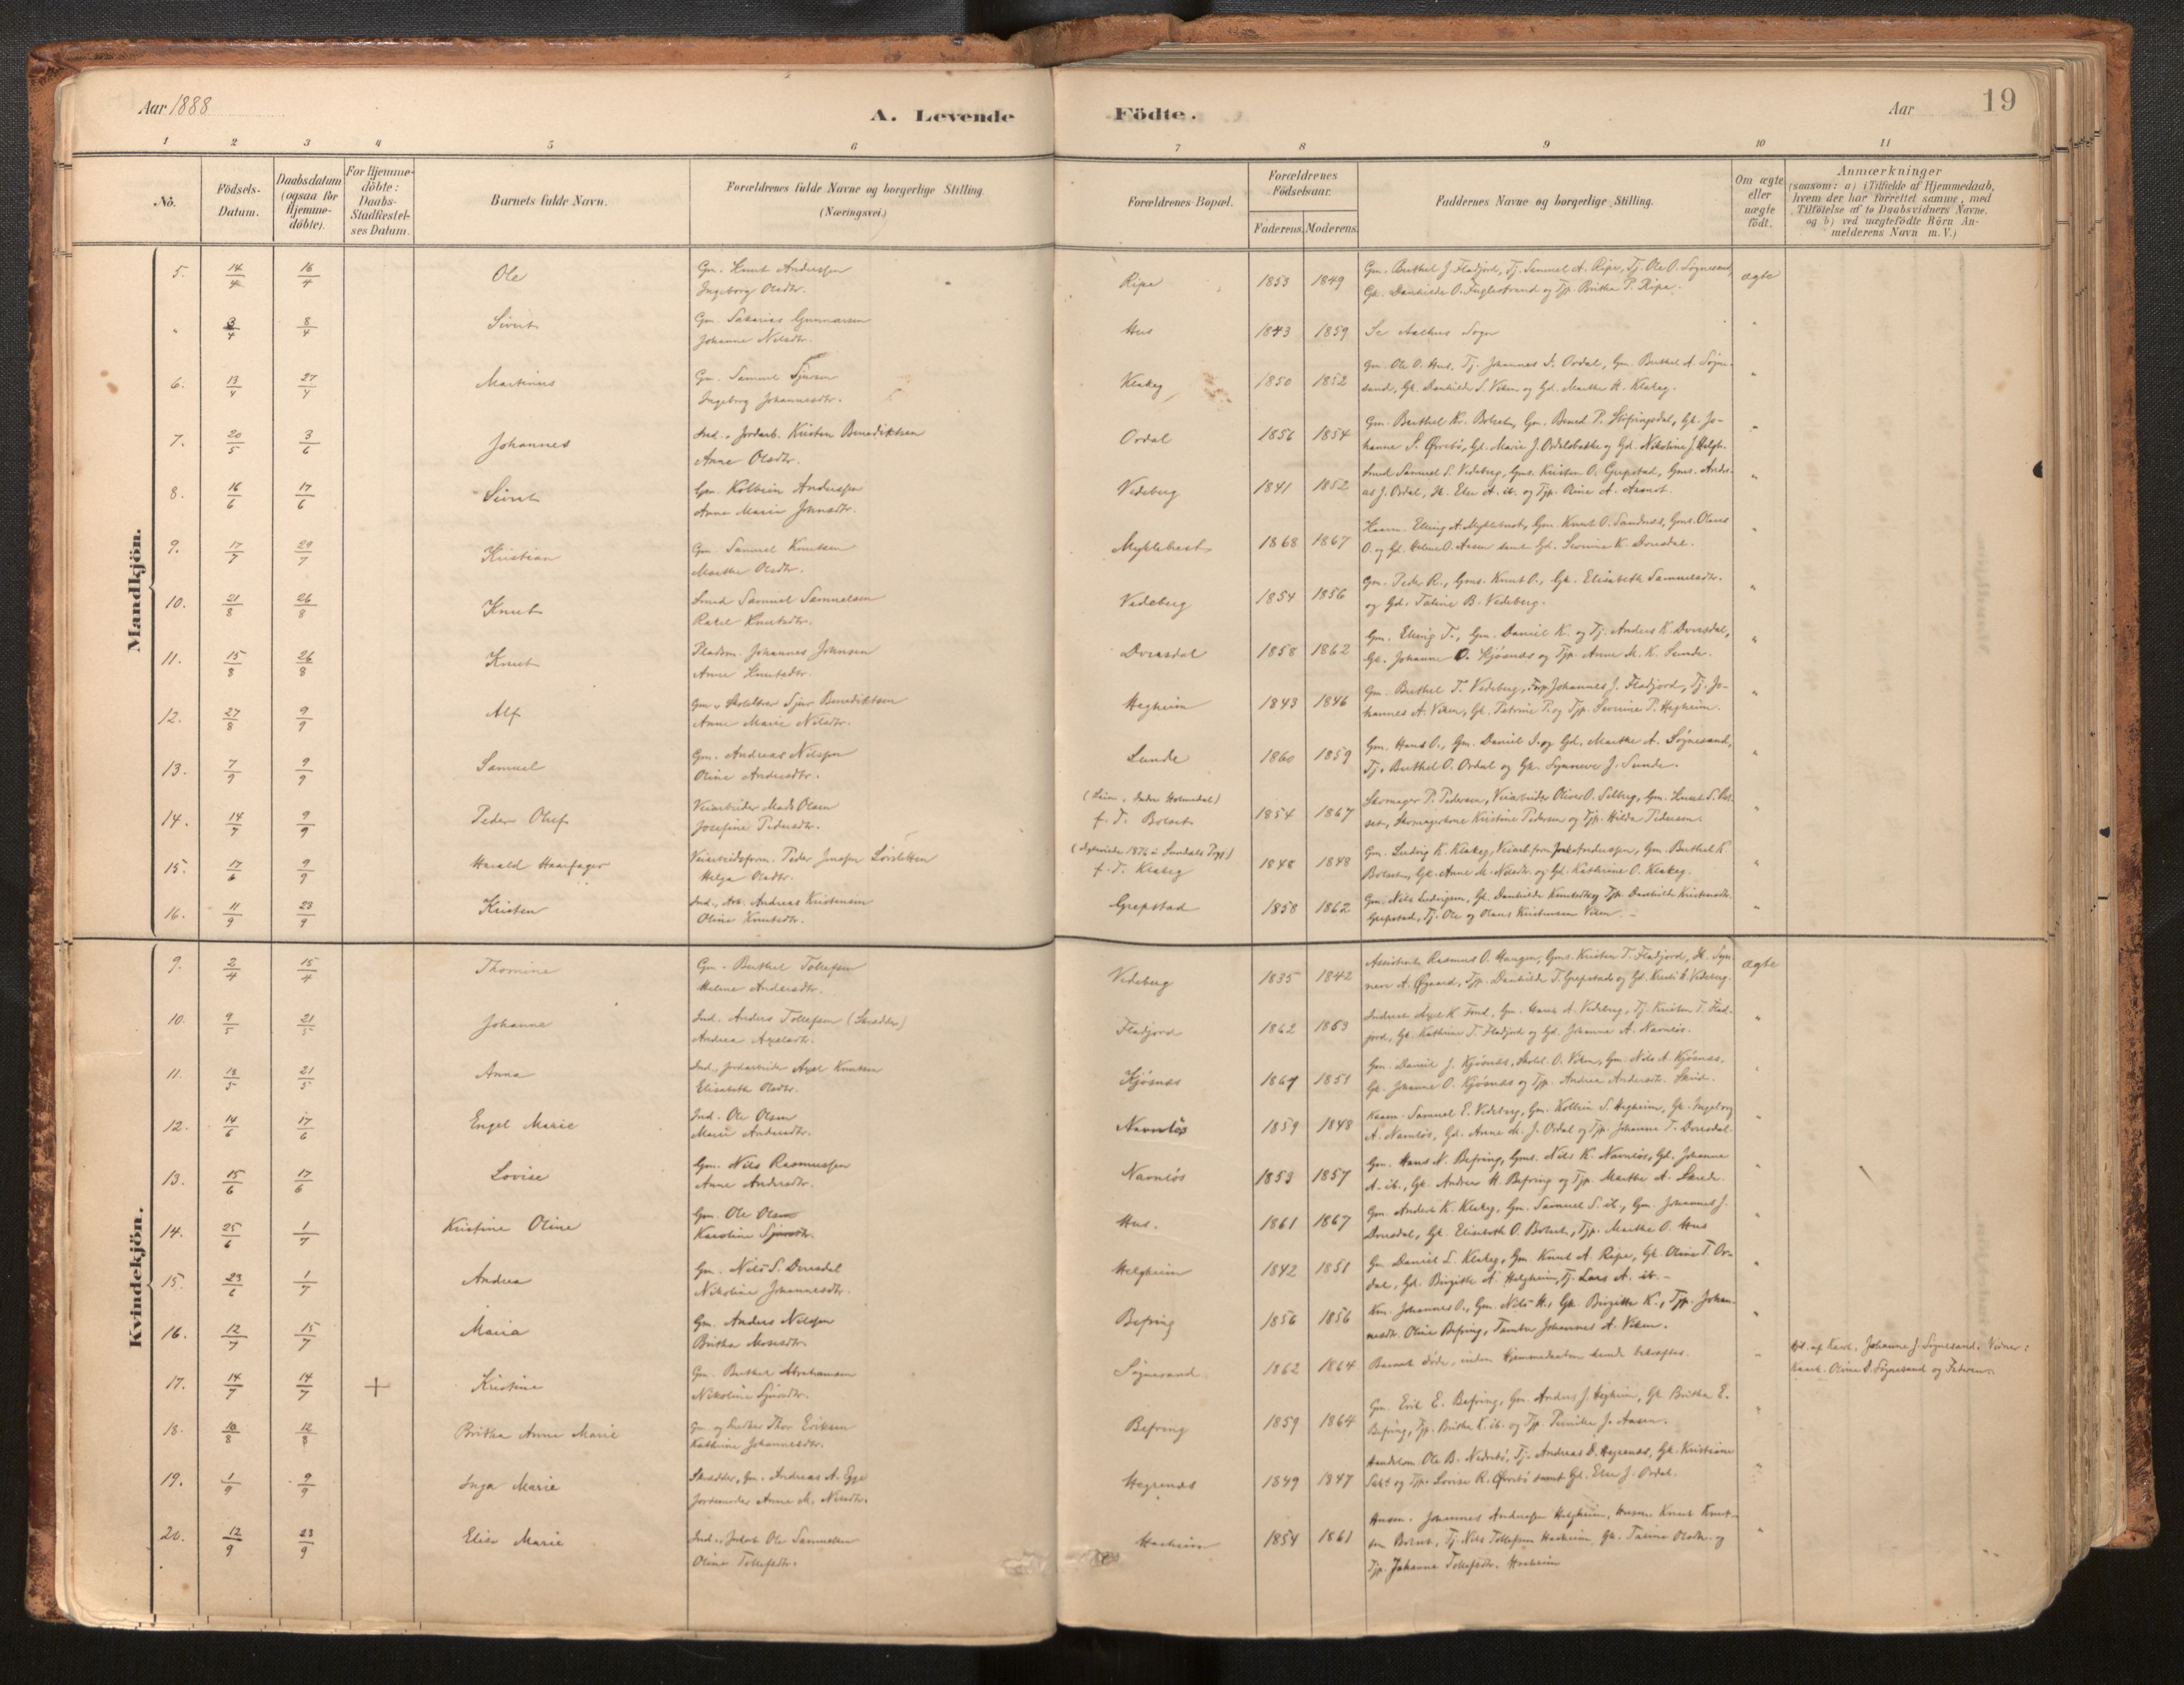 Aar 1888
A. Levende Födte.
Aar
19
1 2 3 4 5 6 7 8 9 10 11
Nô.
Födsels-Datum.
Daabsdatum (ogsaa for Hjemme-döbte).
For Hjemme-döbte: Daabs-Stadfæstel-ses Datum.
Barnets fulde Navn.
Forældrenes fulde Navne og borgerlige Stilling. (Næringsvei.)
Forældrenes Bopæl.
Forældrenes Födselsaar.
Faderens. Moderens.
Faddernes Navne og borgerlige Stilling.
Om ægte eller uægte födt.
Anmærkninger
(saasom: a) i Tilfælde af Hjemmedaab,
hvem der har forrettet samme, med
Tilföielse af to Daabsvidners Navne.
og b) ved uægtefödte Börn An-
melderens Navn m. V.)
Mandkjön.
5. 14/4 16/4 Ole Gm. Knut Anderssen Ripe 1853 1849 Gm. Berthel J. Fladjord, Tj. Samuel A. Ripe, Tj. Ole O. Sögnesand, ægte
Ingeborg Olsdtr. Gk. Danhilde O. Fuglestrand og Tjp. Britha P. Ripe.
" 3/4 8/4 Sivert Gm. Sakarias Gunnarsen Hus 1843 1859 Se Aalhus Sogn "
Johanne Nilsdtr.
6. 13/4 27/4 Martinus Gm. Samuel Sjursen Klakeg 1850 1852 Gm. Ole O. Hus, Tj. Johannes S. Ordal, Gm. Berthel A. Sögne- "
Ingeborg Johannesdtr. sand, Gk. Danhilde S. Viken og Gd. Marthe H. Klakeg.
7. 20/5 3/6 Johannes Ind. Jordarb. Kristen Benediktsen Ordal 1856 1854 Gm. Berthel Kr. Bolset, Gm. Bened. P. Stöfringsdal, Gk. Jo- "
Anne Olsdtr. hanne S. Örrebö, Gd. Marie J. Ordalsbakke og Gd. Nikoline J. Helgh.
8. 16/6 17/6 Sivert Gm. Kolbein Anderssen Vedeberg 1841 1852 Smed Samuel S. Vedeberg, Gms. Kristen O. Grepstad, Gms. Andre- "
Anne Marie Johnsdtr. as J. Ordal, H. Else A. ib. og Tjp. Oline A. Aamot.
9. 17/7 29/7 Kristian Gm. Samuel Knutsen Myklebust 1868 1867 Kaarm. Elling A. Myklebust, Gm. Knut O. Sandnes, Gms. Olaus "
Marthe Olsdtr. O. og Gd. Heline O. Aasen samt Gd. Severine K. Dvergsdal.
10. 21/8 26/8 Knut Smed Samuel Samuelsen Vedeberg 1854 1856 Gm. Peder R., Gms. Knut O., Gk. Elisabeth Samuelsdtr. "
Rakel Knutsdtr. og Gd. Taline B. Vedeberg.
11. 15/8 26/8 Knut Pladsm. Johannes Johnsen 1858 1862 Gm. Elling T., Gm. Daniel K. og Tj. Anders K. "
Anne Knutsdtr. Gk. Johanne O. Kjösnes og Tjp. Anne M. K. Sunde.
12. 27/8 9/9 Alf Gm. Skolelærer Sjur Benediktsen Hegheim 1843 1846 Gm. Berthel T. Vedeberg, Johannes J. Fladjord, Tj. Jo- "
Anne Marie Nilsdtr. hannes A. Viken, Gk. Petrine P. og Tjp. Severine P. Hegheim.
13. 7/9 9/9 Samuel Gm. Andreas Nilssen Sunde 1860 1859 Gm. Hans O., Gm. Daniel J. og Gd. Marthe A. Sögnesand, "
Oline Andersdtr. Tj. Berthel O. Ordal og Gk. Synneve J. Sunde.
14. 14/7 9/9 Peder Oluf Veiarbeider Mads Olsen (Leim, Indre Holmedal) 1854 1867 Skomager P. Pedersen, Veiarbeider Oliver O. Solberg, Gm. Knut S. Bol- "
Josefine Pedersdtr. f. T. Bolset set, Skomagerkone Kristine Pedersen og Tjp. Hilda Pedersen.
15. 17/6 9/9 Harald Haarfager Veiarbeidsform. Peder Jensen 1848 1848 Gm. Ludvig K. Klakeg, Anderssen, Gm. Berthel K. "
Helga Olsdtr. f. T. Klakeg Bolset, Gk. Anne M. Nilsdtr. og Gd. Kathrine O. Klakeg.
16. 11/9 23/9 Kristen Ind., Arb. Andreas Kristensen Grepstad 1858 1862 Gm. Nils Ludvigsen, Gk. Danhilde Knutsdtr og Tjp. Danhilde Kristensdtr. "
Oline Knutsdtr. Grepstad, Tj. Ole og Olaus Kristensen Viken.
Kvindekjön.
9. 2/4 15/4 Thomine Gm. Berthel Tollefsen Vedeberg 1835 1842 Assistent Rasmus O. Haugen, Gms. Kristen T. Fladjord, H. Syn- ægte
Heline Andersdtr. neve A. Öygaard, Tjp. Danhilde T. Grepstad og Gd. Vedeberg.
10. 9/5 21/5 Johanne Ind. Anders Tollefsen (Skrædder) Fladjord 1862 1863 Inderst Axel K. Fond, Gm. Hans A. Vedeberg, Tj. Kristen T. Flad- "
Andrea Axelsdtr. jord, Gk. Kathrine T. Fladjord og Gd. Johanne A. Navnlös.
11. 18/5 21/5 Anna Ind., Jordarbeider Axel Knutsen Kjösnes 1864 1851 Gm. Daniel J. Kjösnes, Skolel. O. Viken, Gm. Nils A. Kjösnes, "
Elisabeth Olsdtr. Gk. Johanne O. Kjösnes og Tjp. Andrea Andersdtr.
12. 14/6 17/6 Engel Marie Ind. Ole Olsen Navnlös 1859 1848 Kaarm. Samuel E. Vedeberg, Gm. Kolbein S. Hegheim, Gk. Ingeborg "
Marie Andersdtr. A. Navnlös, Gd. Anne M. J. Ordal og Tjp. Johanne T.
13. 15/6 17/6 Lovise Gm. Nils Rasmussen Navnlös 1853 1857 Gm. Hans N. Befring, Gms. Nils K. Navnlös, Gd. Johanne "
Anne Andersdtr. A. ib., Gk. Andrea H. Befring og Tjp. Marthe A.
14. 25/6 1/7 Kristine Oline Gm. Ole Olsen Hus. 1861 1867 Gm. Anders K. Klakeg, Gm. Samuel S. ib., Gm. Johannes J. "
Karoline Sjursdtr. Gk. Elisabeth O. Bolset, Tjp. Marthe O. Hus
15. 23/6 1/7 Andrea Gm. Nils S. Helgheim 1842 1851 Gm. Daniel S. Klakeg, Gm. Knut A. Ripe, Gk. Oline T. Or- "
Nikoline Johannesdtr. dal, Gd. Birgitte A. Helgheim, Tj. Lars A. ib.
16. 12/7 15/7 Maria Gm. Anders Nilssen Befring 1856 1856 Km. Johannes O., Gm. Nils H., Gk. Birgitte K., Tjp. Johan- "
Britha Mosesdtr. nesdtr. Oline Befring, Tambur Johannes A. Viken.
17. 14/7 14/7 + Kristine Gm. Berthel Abrahamsen Sögnesand 1862 1864 Barnet döde, inden Hjemmedaaben kunde bekræftes. " Hd. af Kaark. Johanne J. Sögnesand. Vidner:
Nikoline Sjursdtr. Kaark. Oline D. Sögnesand og Faderen.
18. 10/8 12/8 Britha Anne Marie Gm. og Snedker Thor Eriksen Befring 1859 1864 Gm. Erik E. Befring, Gm. Anders J. Hegheim, Gk. Britha E. "
Kathrine Johannesdtr. Befring, Tjp. Britha K. ib. og Tjp. Pernille J. Aasen.
19. 1/9 9/9 Inga Marie Skrædder, Gm. Andreas A. Egge Hegrenes 1849 1847 Handelsm. Ole B. Nedrebö, Tj. Andreas D. Hegrenes, Gk. Kristiane "
Jordemoder Anne M. Nilsdtr. og Tjp. Lovise R. Örrebö samt Gd. Else J. Ordal.
20. 12/9 23/9 Elise Marie Ind., Ole Samuelsen Hasheim 1854 1861 Husm. Johannes Anderssen Helgheim, Husm. Knut Knut- "
Oline Tollefsdtr. sen Bolset, Tj. Nils Tollefsen Hasheim, Gk. Taline Olsdtr. og
Tjp. Johanne Tollefsdtr. Hasheim